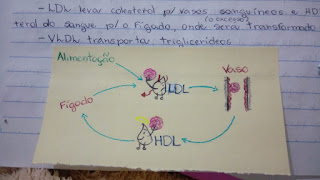 - LDL leva colesterol p/ vasos sanguíneos e HD
terol do sangue p/ o Fígado, (o excesso) onde será transformado
- VLDL transporta triglicerídeos
Alimentação
Vaso
LDL
Fígado
HDL